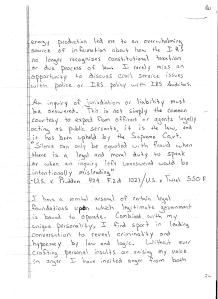 energy production led me to an overwhelming
source of information about how the IRS
no longer recognizes constitutional taxation
or due process of law. I rarely miss an
opportunity to discuss civil service issues
with police or IRS policy with IRS auditors.
An inquiry of jurisdiction or liability must
be answered. This is not simply the common
courtesy to expect from officers or agents legally
acting as public servants, it is the law, and
it has been upheld by the Supreme Court.
"Silence can only be equated with fraud when
there is a legal and moral duty to speak
or when an inquiry left unanswered would be
intentionally misleading"
-U.S. v. Prudden 424 F.2d 1021/U.S. v. Tweel 550 F
I have a small arsenal of certain legal
foundations upon which legitimate government
is bound to operate. Combined with my
unique personality, I find sport in leading
conversation to reveal criminality and
hypocrisy by law and logic. Without ever
crossing personal insults or raising my voice
in anger I have incited anger from both